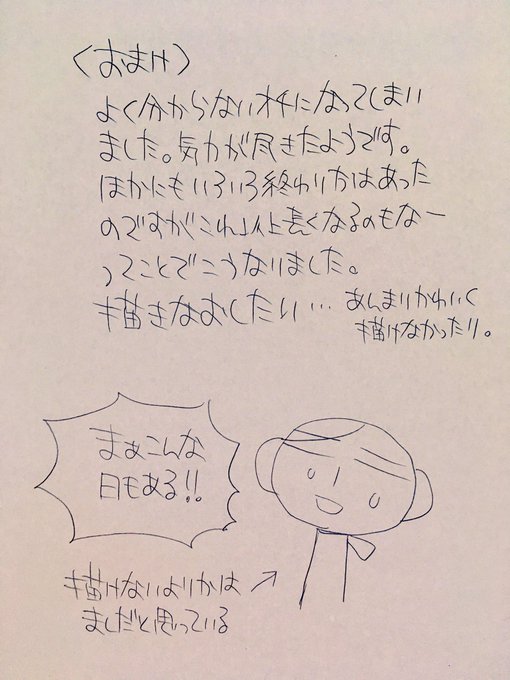 〈おまけ〉
よく分からないオチになってしまい
ました。気力が尽きたようです。
ほかにもいろいろ終わり方はあった
のですがこれ以上長くなるのもなー
ってことでこうなりました。
描きなおしたい… あんまりかわいく
描けなかったり。
まぁこんな
日もある!!
描けないよりかは →
ましだと思っている